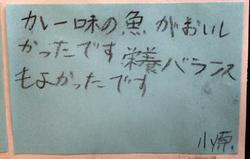 カレー味の魚がおいし
かったです栄養バランス
もよかったです
小原